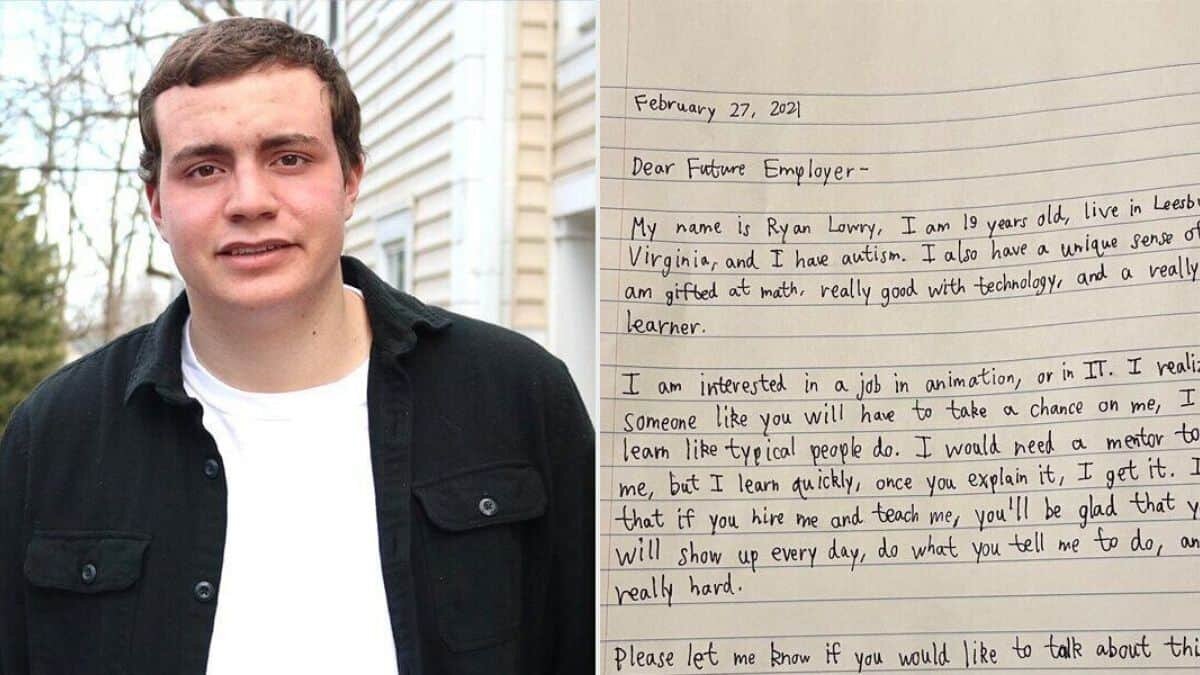 February 27, 2021
Dear Future Employer-
My name is Ryan Lowry, I am 19 years old, live in Leesbu
Virginia, and I have autism. I also have a unique sense of
am gifted at math, really good with technology, and a really
learner.
I am interested in a job in animation, or in IT. I realiz
someone like you will have to take a chance on me, I
learn like typical people do. I would need a mentor to
me, but I learn quickly, once you explain it, I get it. I
that if you hire me and teach me, you'll be glad that y
will show up every day, do what you tell me to do, an
really hard.
Please let me know if you would like to talk about thi